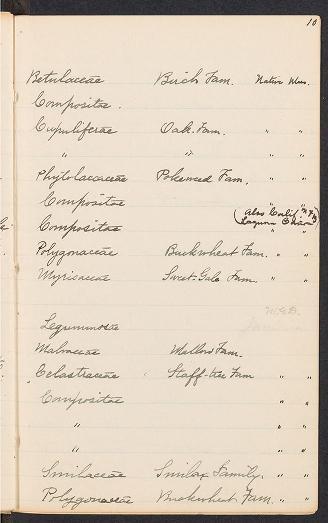 10
Betulaceae Birch Fam. Native
Compositae.
Cupuliferae Oak. Fam. " "
" " " "
Phytolaccaceae Pokeweed Fam. " "
Compositae " "
(Also Calif.
Compositae " "
Polygonaceae Buckwheat Fam. " "
Myricaceae Sweet-Gale Fam. " "
Leguminosae
Malvaceae Mallow Fam.
Celastraceae Staff-tree Fam " "
Compositae " "
" " "
" " "
Smilaceae Smilax Family. " "
Polygonaceae Buckwheat Fam. " "